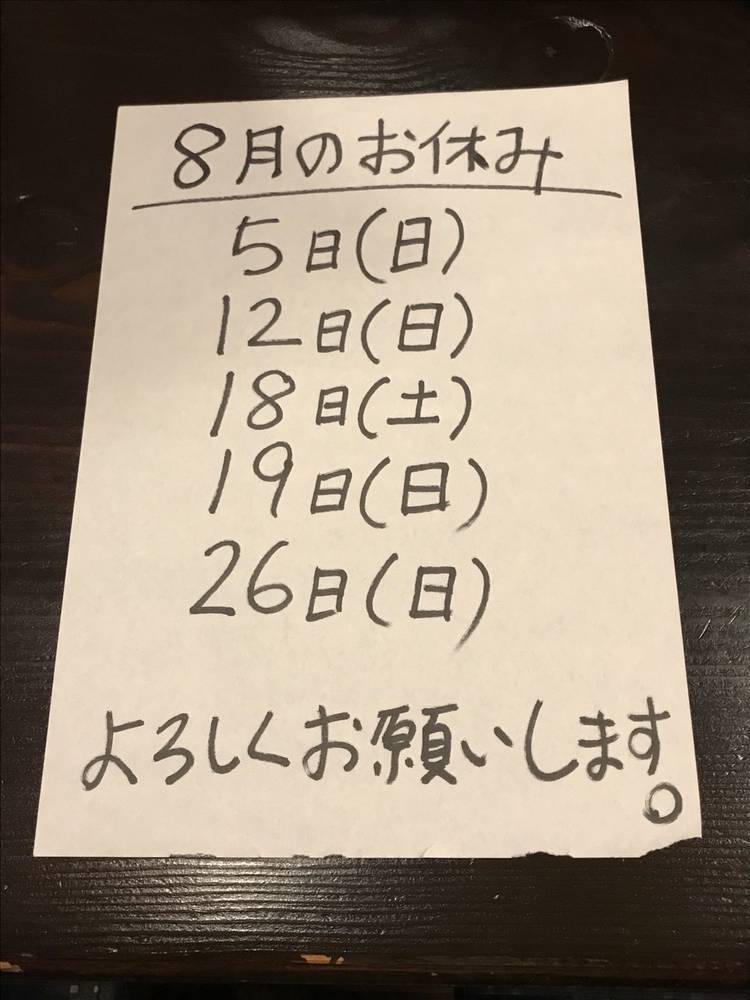 8月のお休み
5日(日)
12日(日)
18日(土)
19日(日)
26日(日)
よろしくお願いします。